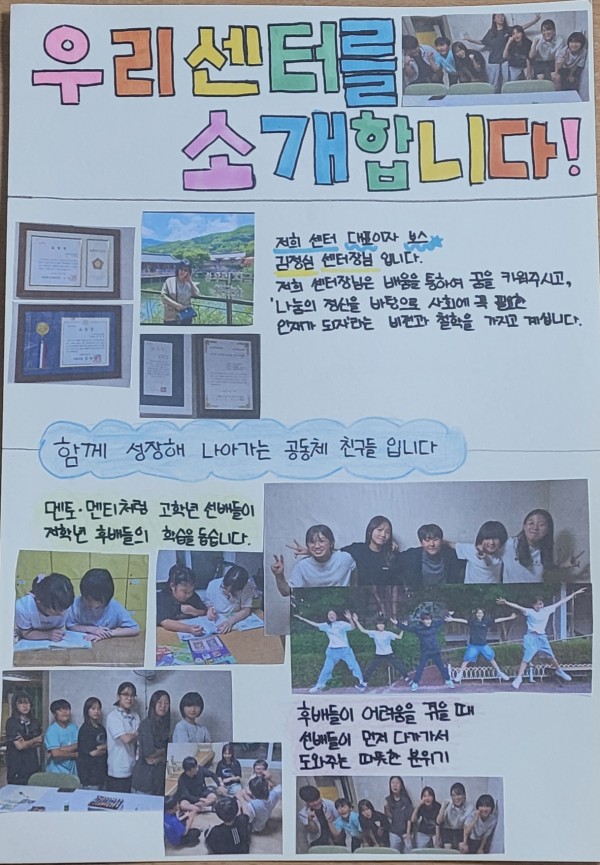 우리센터를
소개합니다!
저희 센터 대표이자 보스
김정심 센터장님 입니다.
저희 센터장님은 배움을 통하여 꿈을 키워주시고,
'나눔의 정신을 바탕으로 사회에 꼭 필요한
인재가 되자'라는 비전과 철학을 가지고 계십니다.
함께 성장해 나아가는 공동체 친구들 입니다
멘토·멘티처럼 고학년 선배들이
저학년 후배들의 학습을 돕습니다.
후배들이 어려움을 겪을 때
선배들이 먼저 다가가서
도와주는 따뜻한 분위기